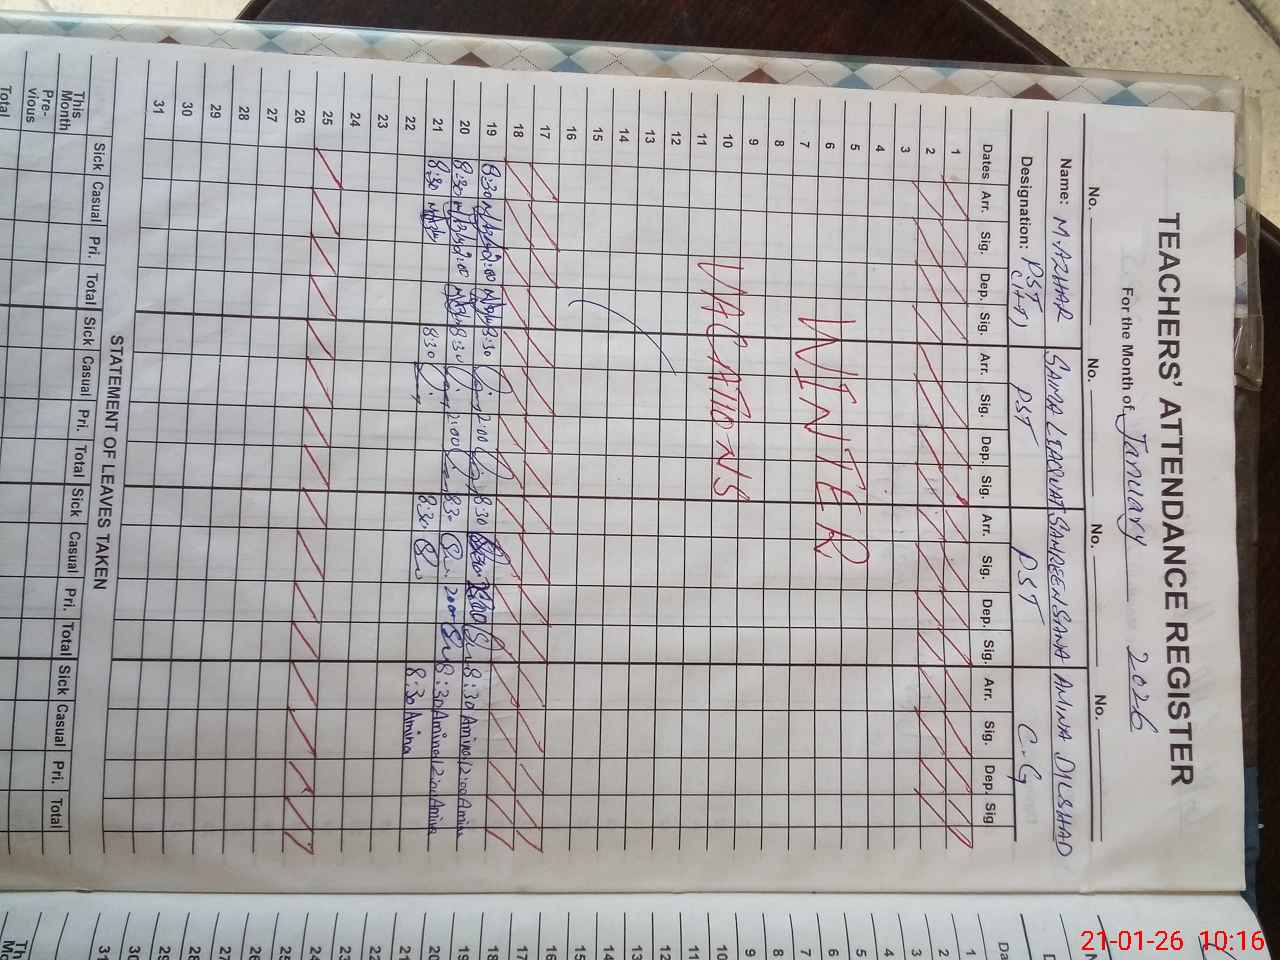 TEACHERS' ATTENDANCE REGISTER
For the Month of January 2026
No. No. No. No.
Name: M. AZHAR SAIMA LIAQUAT SAMREEN SANA AMINA DILSHAD
Designation: PST (H.T) PST PST C-G
Dates Arr. Sig. Dep. Sig. Arr. Sig. Dep. Sig. Arr. Sig. Dep. Sig. Arr. Sig. Dep. Sig
1
2
3
4
5
6
7
8
9
10
11
12
13
14
15
16
17
18
WINTER
VACATIONS
19 8:30 2:00 8:30 2:00 8:30 8:30 Amina 2:00 Amina
20 8:30 2:00 8:30 2:00 8:30 2:00 8:30 Amina 2:00 Amina
21 8:30 8:30 8:30 8:30 Amina
22
23
24
25
26
27
28
29
30
31
STATEMENT OF LEAVES TAKEN
Sick Casual Pri. Total Sick Casual Pri. Total Sick Casual Pri. Total Sick Casual Pri. Total
This Month
Pre-vious
Total
1
2
3
4
5
6
7
8
9
10
11
12
13
14
15
16
17
18
19
20
21
22
23
24
25
26
27
28
29
30
31
21-01-26 10:16